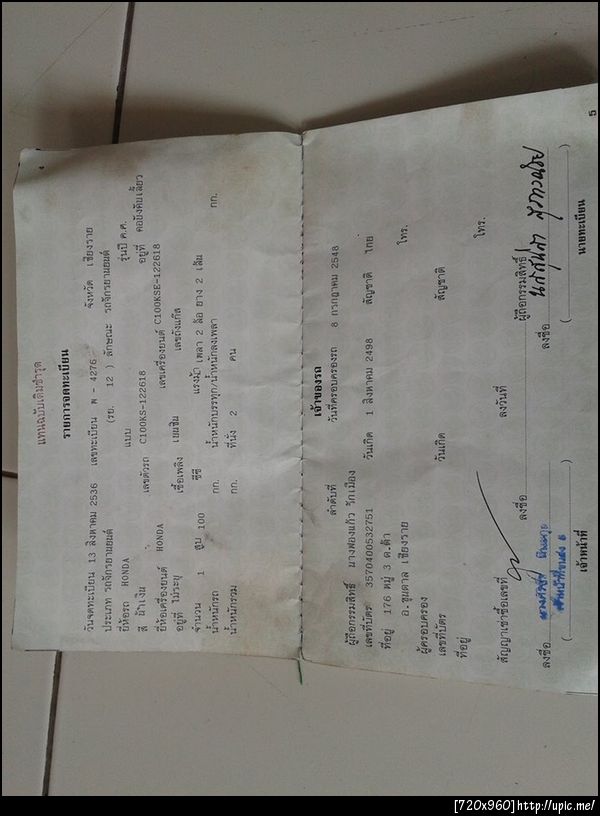 4
แทนฉบับเดิมชำรุด
รายการจดทะเบียน
วันจดทะเบียน 13 สิงหาคม 2536 เลขทะเบียน พ - 4276 จังหวัด เชียงราย
ประเภท รถจักรยานยนต์ (รย. 12 ) ลักษณะ รถจักรยานยนต์
ยี่ห้อรถ HONDA แบบ รุ่นปี ค.ศ.
สี น้ำเงิน เลขตัวรถ C100KS-122618 อยู่ที่ คอบังคับเลี้ยว
ยี่ห้อเครื่องยนต์ HONDA เลขเครื่องยนต์ C100KSE-122618
อยู่ที่ ไม่ระบุ เชื้อเพลิง เบนซิน เลขถังแก๊ส
จำนวน 1 สูบ 100 ซีซี แรงม้า เพลา 2 ล้อ ยาง 2 เส้น
น้ำหนักรถ กก. น้ำหนักบรรทุก/น้ำหนักลงเพลา กก.
น้ำหนักรวม กก. ที่นั่ง 2 คน
เจ้าของรถ
ลำดับที่ วันที่ครอบครองรถ 8 กรกฎาคม 2548
ผู้ถือกรรมสิทธิ์ นางฟองแก้ว รักเมือง
เลขที่บัตร 3570400532751 วันเกิด 1 สิงหาคม 2498 สัญชาติ ไทย
ที่อยู่ 176 หมู่ 3 ต.ต้า
อ.ขุนตาล เชียงราย โทร.
ผู้ครอบครอง
เลขที่บัตร วันเกิด สัญชาติ
ที่อยู่ โทร.
สัญญาเช่าซื้อเลขที่ ลงวันที่
ลงชื่อ ผู้ถือกรรมสิทธิ์
ลงชื่อ ลงชื่อ
( ) ( )
เจ้าหน้าที่ นายทะเบียน
5
[720x960]http://upic.me/